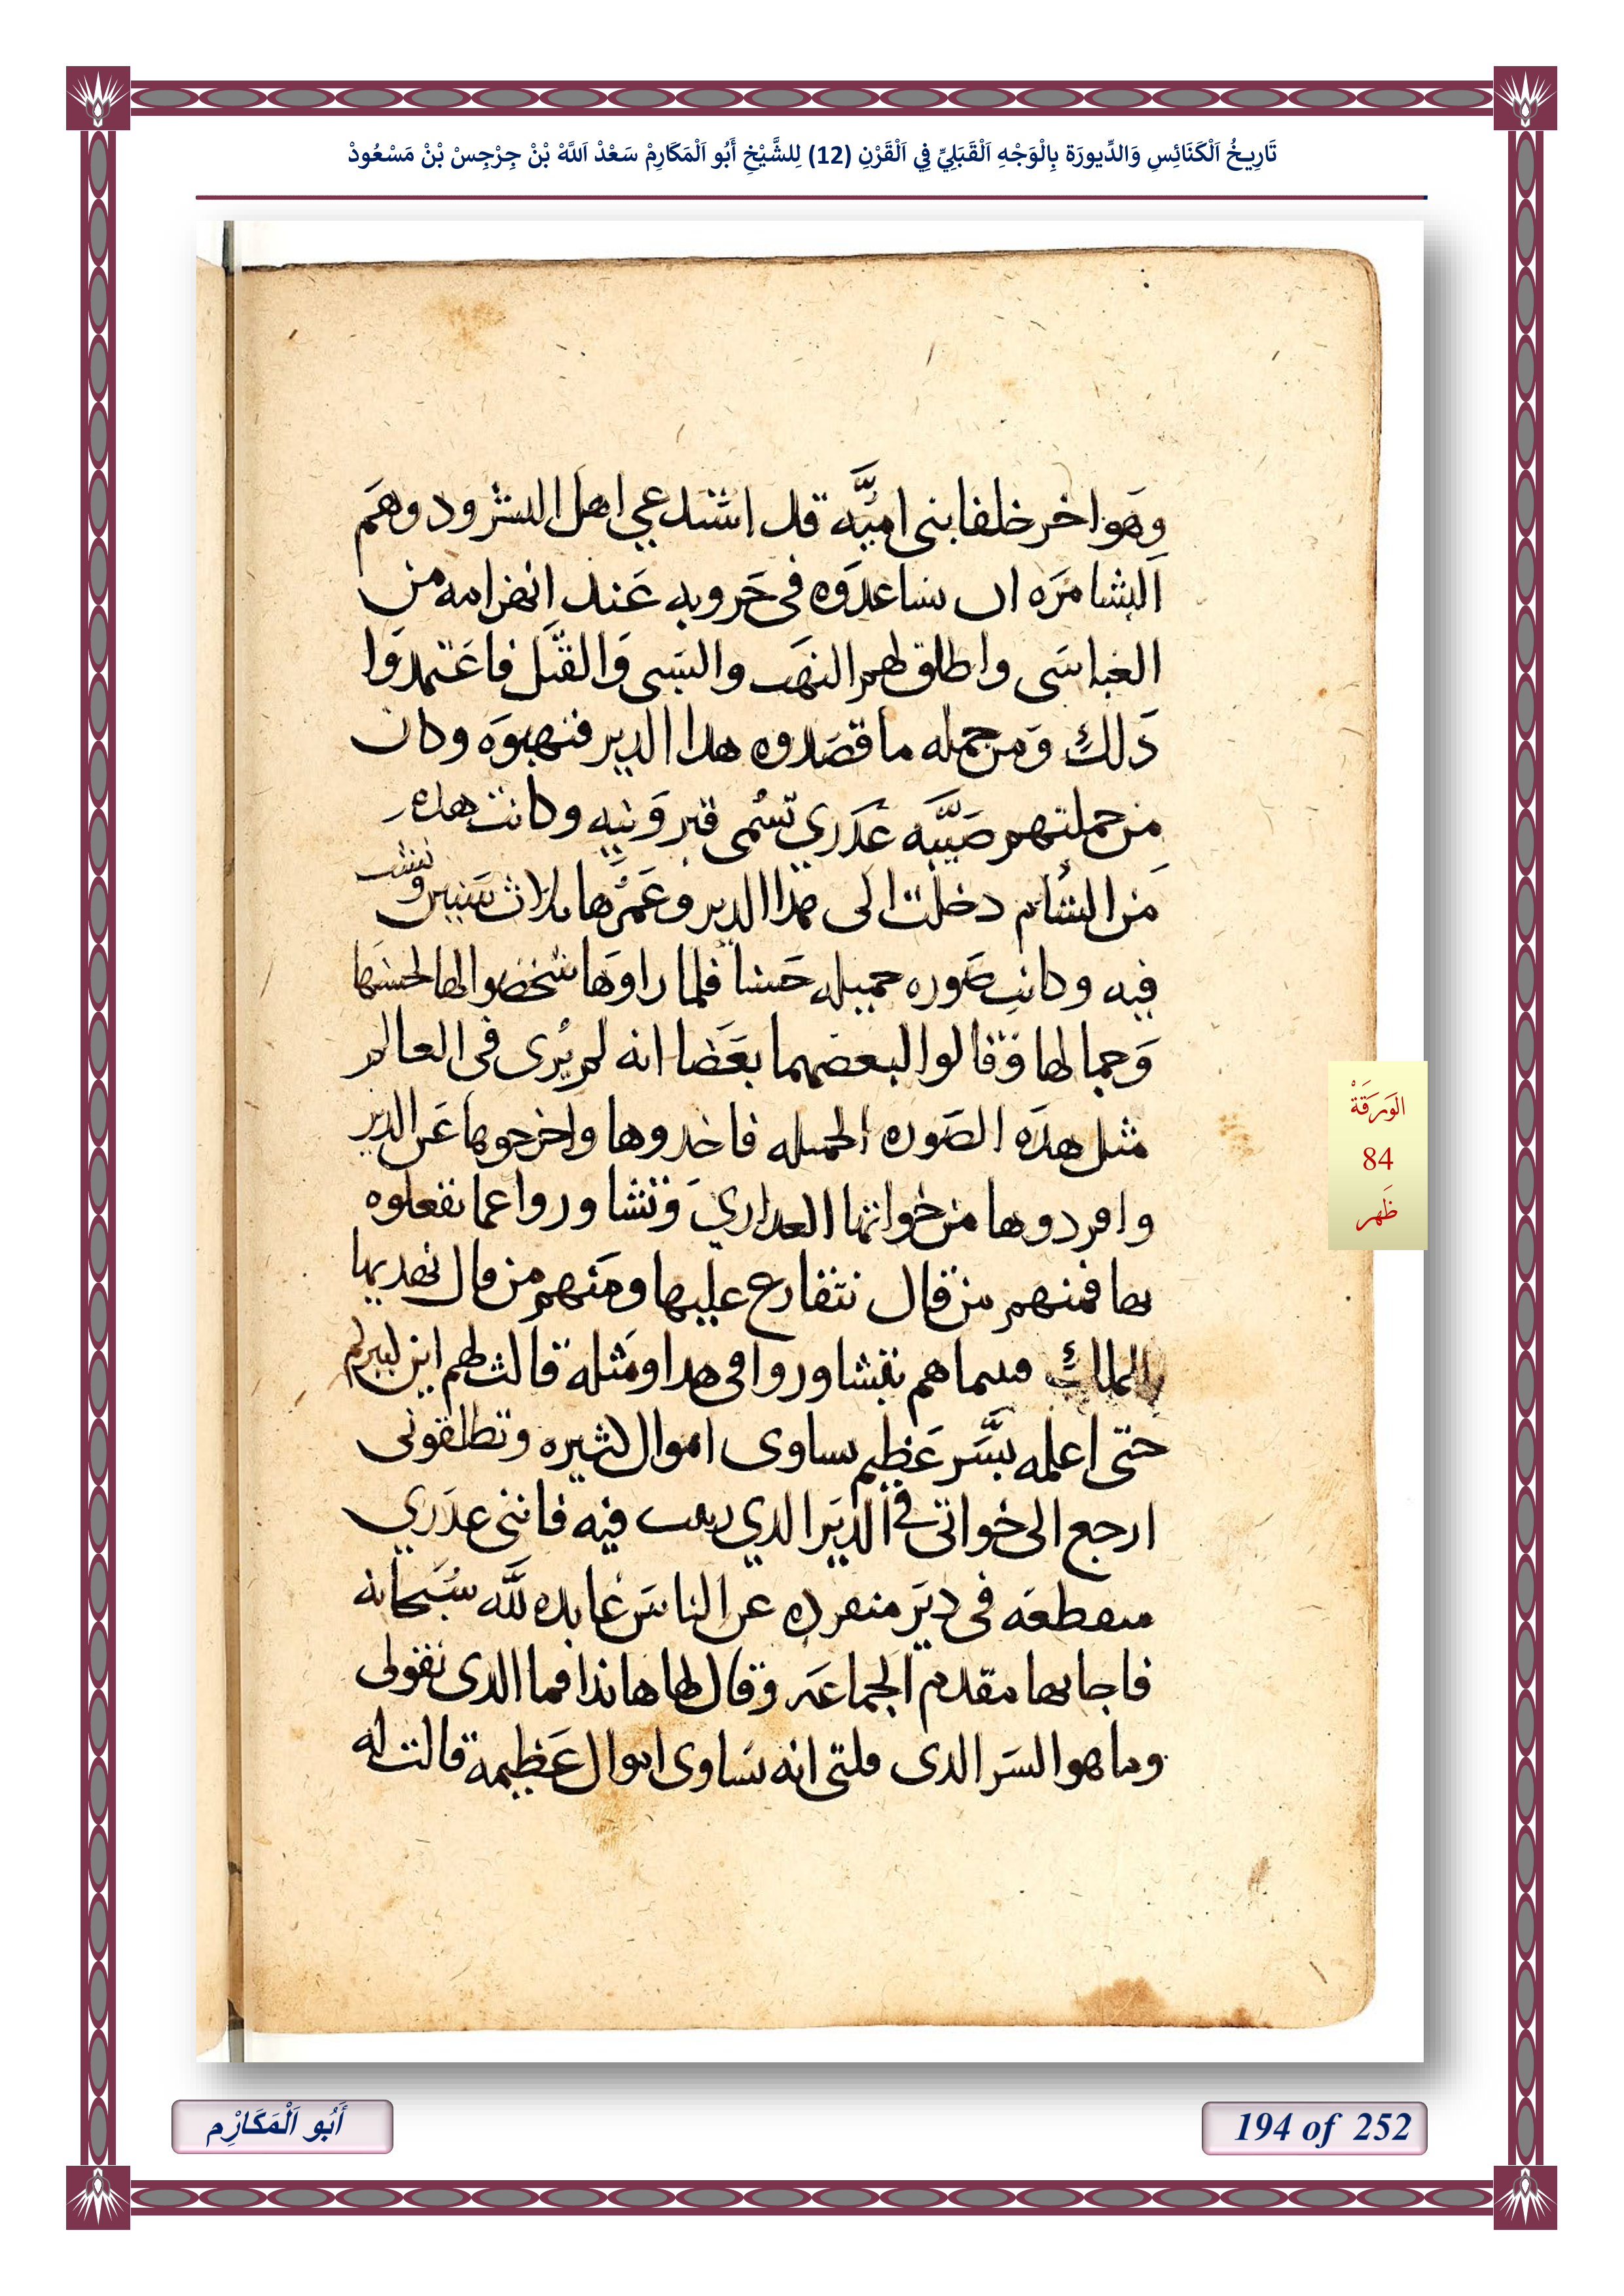 تَارِيخُ اَلْكَنَائِسِ وَالدِّيورَة بِالْوَجْهِ اَلْقَبَلِيِّ فِي اَلْقَرْنِ (12) لِلشَّيْخِ أَبُو اَلْمَكَارِمْ سَعْدْ اَللَّهْ بْنْ جِرْجِسْ بْنْ مَسْعُودْ
وهو اخر خلفا بنى اميّه قد استدعي اهل البشرود وهم
البشامره ان يساعدوه فى حروبه عند انهزامه من
العباسى واطلق لهم النهب والسبى والقتل فاعتمدوا
دلك ومن جمله ما قصدوه هدا الدير فنهبوه وكان
من جملتهم صبيّه عدري تسمى فبرونيه وكانت هده
من الشام دخلت الى هدا الدير وعمرها ثلاث سنين ونشت
فيه وكانت صوره جميله حسنا فلما راوها شخصوا لها لحسنها
وجمالها وقالوا لبعضهما بعضا انه لم يُرى فى العالم
مثل هده الصوره الجميله فاخدوها واخرجوها عن الدير
وافردوها من خواتها العداري وتشاوروا عما يفعلوه
بها فمنهم من قال نتقارع عليها ومنهم من قال نهديها
للملك فبينما هم يتشاوروا فى هدا ومثله قالت لهم اين كبيركم
حتى اعلمه بسّر عظيم يساوى اموال كثيره وتطلقونى
ارجع الى خواتى فى الدير الدي ربيت فيه فاننى عدري
منقطعه فى دير منفرده عن الناس عابده للّه سبحانه
فاجابها مقدم الجماعه وقال لها هاندا فما الدى تقولى
وما هو السر الدى قلتى انه يساوى اموال عظيمه قالت له
الوَرَقَةْ
84
ظَهر
194 of 252
أَبُو اَلْمَكَارِْم